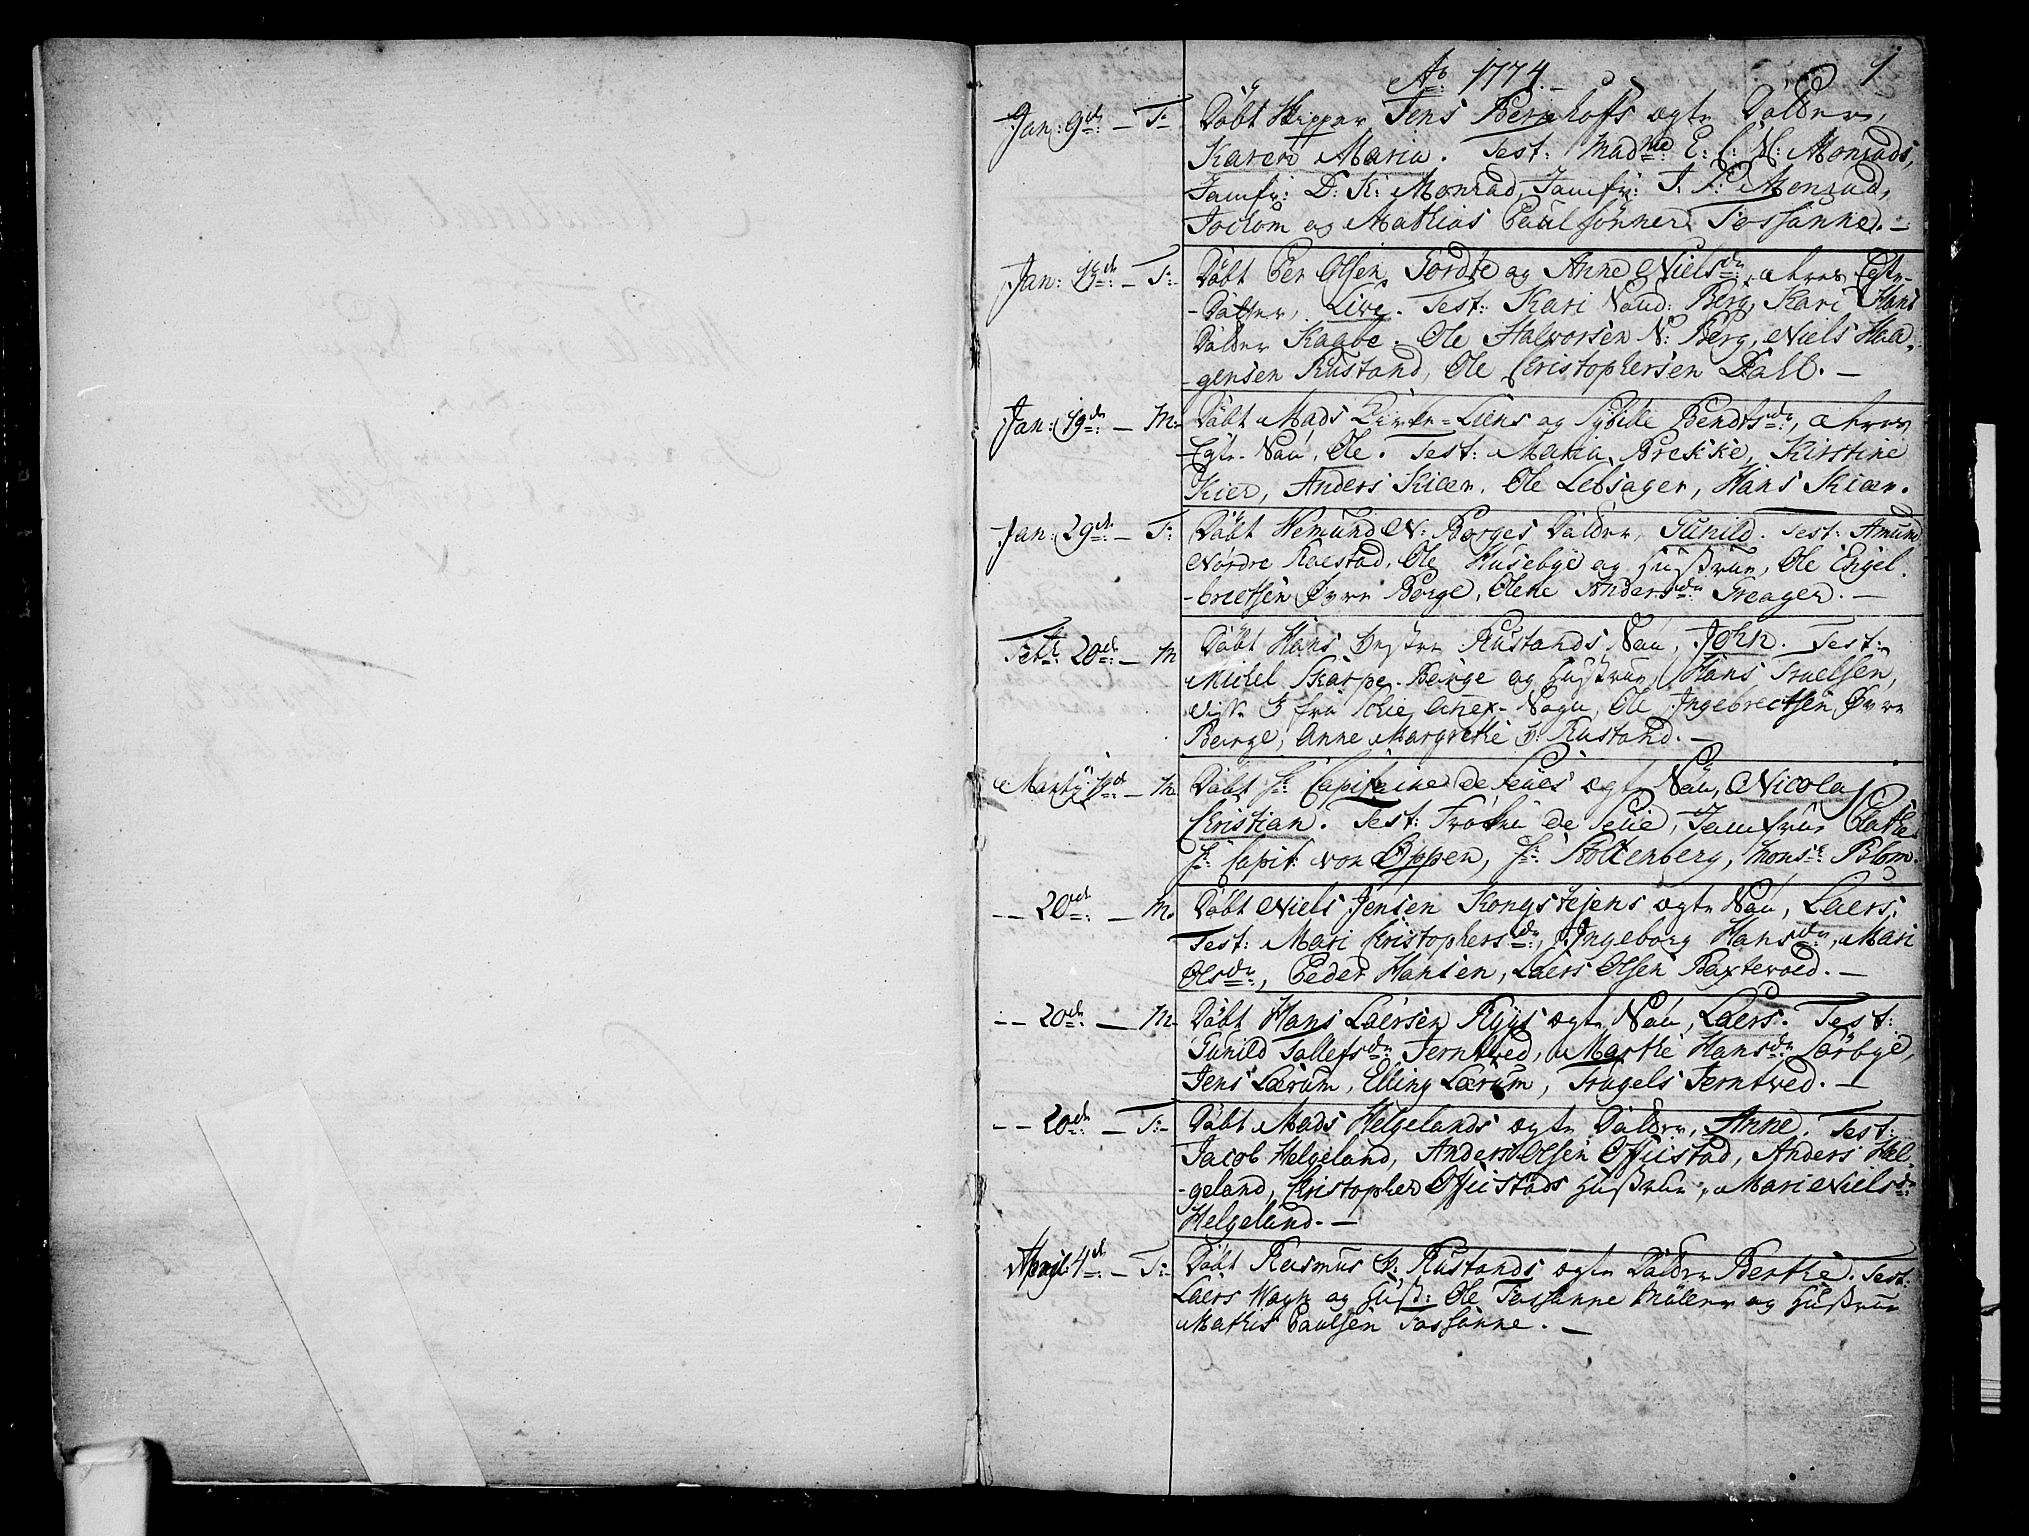 Ao 1774.
1
Jan: 9de: — T: Döbt Skipper Jens Berghoffs ægte Dotter,
Karen Maria. Test: Madme: E: C: M: Monrads,
Jomfr: D: K: Monrad, Jomfr: J. P: Monrad,
Jochom og Mathias Paulsönner Fossanne. —
Jan: — T: Döbt Per Olsen Jordre og Anne Nielsdr: deres Egte
Dotter, Live. Test: Kari Nord: Berg, Kari Hans
Dotter Kaabe. Ole Halvorsen N: Berg, Niels Haa-
-gensen Rustand, Ole Christophersen Dahl. —
Jan: 19de: — M: Döbt Mads Liens og Sybille Bendtsdr:, deres
Egte Sön, Ole. Test: Maria Brekke, Kirstine
Kier, Anders Kiær, Ole Lebsager, Hans Kiær.
Jan: 29de: — T: Döbt Hemund N: Borges Dotter, Gunild. Test: Amund
Nordre Roestad, Ole Husebye og Hustrue, Ole Engel-
-brectsen Øvre Borge, Olene Andersdr: Treager. —
Febr: 20de: — M Döbt Hans Østre Rustands Sön, John. Test:
Michel Skarpe-Berge og Hustrue, Hans Truelsen,
disse 3 fra Anex-Sogn, Ole Ingebrectsen Øvre
Berge, Anne Margrethe Ø: Rustand. —
Marty — M Döbt Hr: Capitaine de Seues ægte Sön, Nicolay
Christian. Test: Fröken de Seue, Jomfrue
Hr: Capit: von Øppen, Hr: Stoltenberg, Monsr: Blom.
—— 20de: — M. Döbt Niels Jensen Kongstejens ægte Sön, Laers.
Test: Mari Christophersdr:, Ingeborg Hansdr:, Mari
Olsdr:, Peder Hansen, Laers Olsen Baxtevoed. —
—— 20de: — M— Döbt Hans Laersen Ryys ægte Sön, Laers. Test:
Gunild Tollefsdr: Jerntved, Marthe Hansdr: Sörbye,
Jens Lærum, Elling Lærum, Trugels Jerntved. —
—— 20de: — T:— Döbt Mads Helgelands ægte Dotter, Anne. Test:
Jacob Helgeland, Anders Olsen Offiustad, Anders Hel-
-geland, Christopher Offiustads Hustrue, Mari Nielsdr:
Helgeland. —
April 4de: — T: Döbt Rasmus Ø: Rustands ægte Dotter Berthe. Test:
Laers og Hust: Ole Fossanne Möller og Hustrue
Mathis Paulsen Fossanne. —